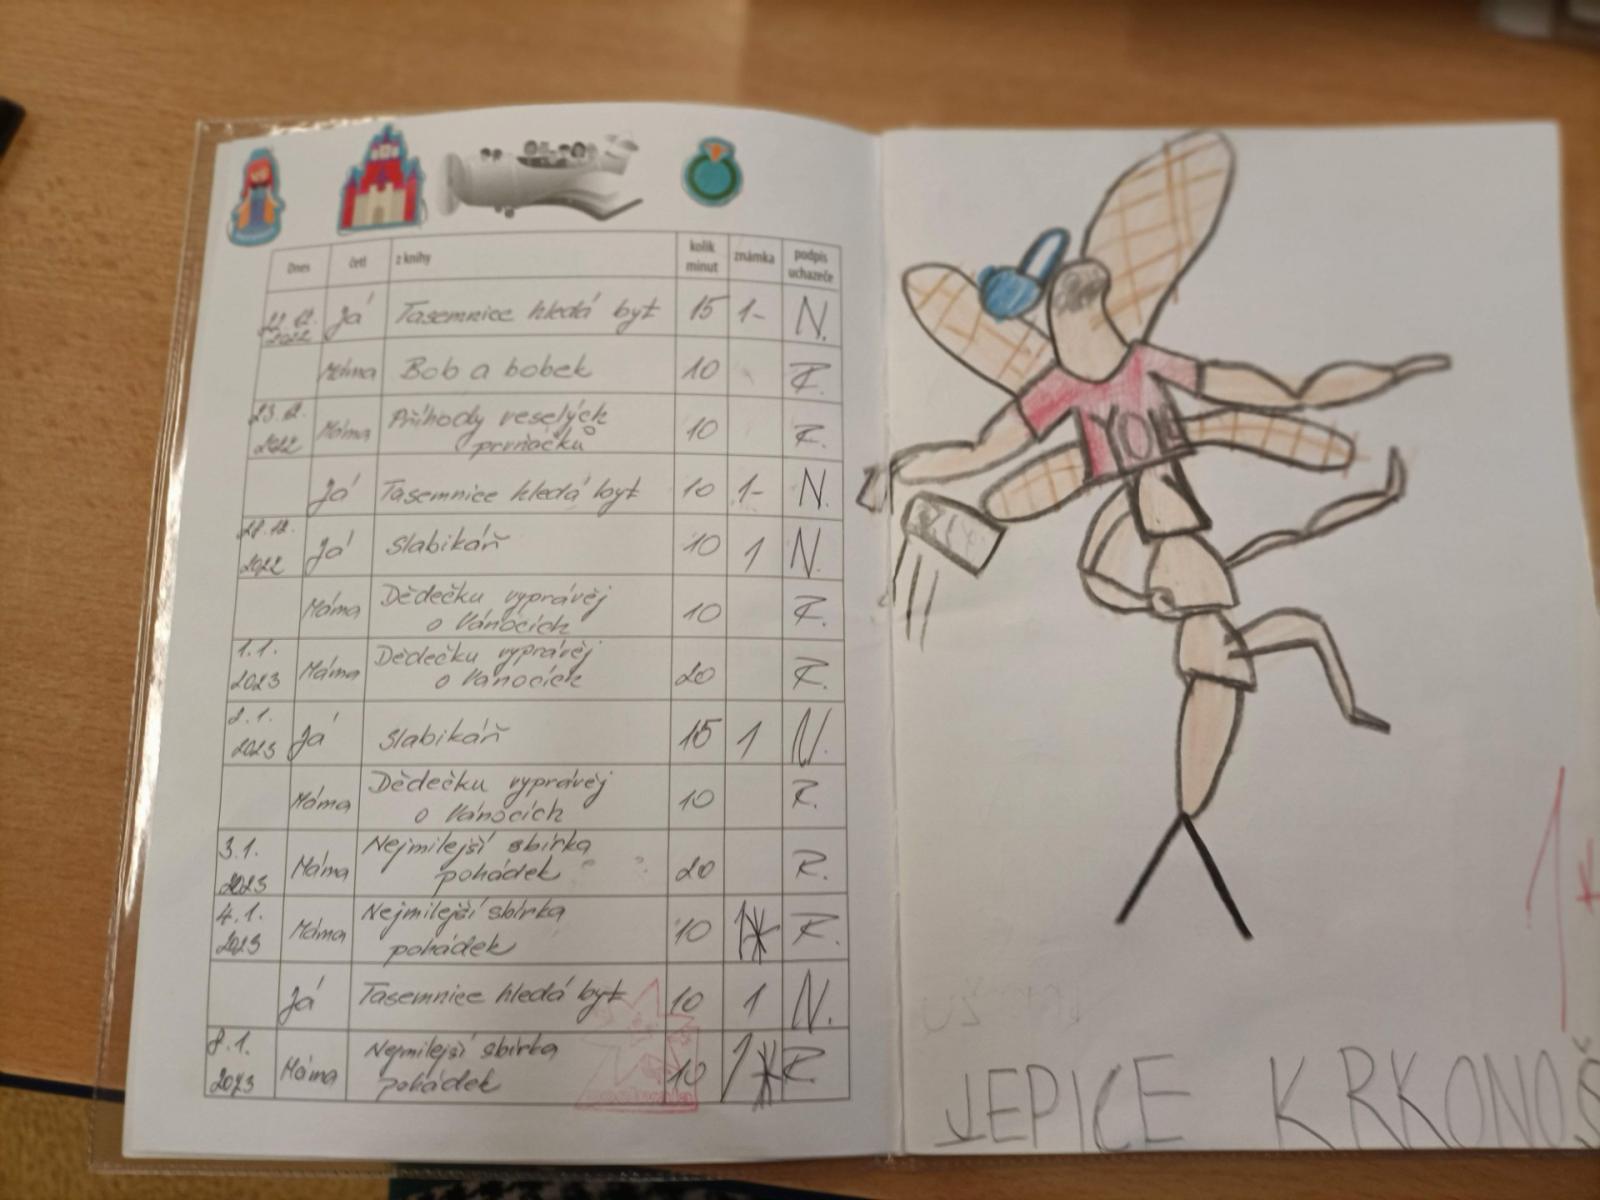 Dnes četl z knihy kolik minut známka podpis uchazeče
22.12. 2022 Já Tasemnice hledá byt 15 1- N.
Máma Bob a bobek 10 R.
23.12. 2022 Máma Příhody veselých
prvňáčků 10 R.
Já Tasemnice hledá byt 10 1- N.
28.12. 2022 Já Slabikář 10 1 N.
Máma Dědečku vyprávěj
o Vánocích 10 R.
1.1. 2023 Máma Dědečku vyprávěj
o Vánocích 20 R.
2.1. 2023 Já Slabikář 15 1 N.
Máma Dědečku vyprávěj
o Vánocích 10 R.
3.1. 2023 Máma Nejmilejší sbírka
pohádek 20 R.
4.1. 2023 Máma Nejmilejší sbírka
pohádek 10 1* R.
Já Tasemnice hledá byt 10 1 N.
8.1. 2023 Máma Nejmilejší sbírka
pohádek 10 1* R.
1*
JEPICE KRKONOŠ